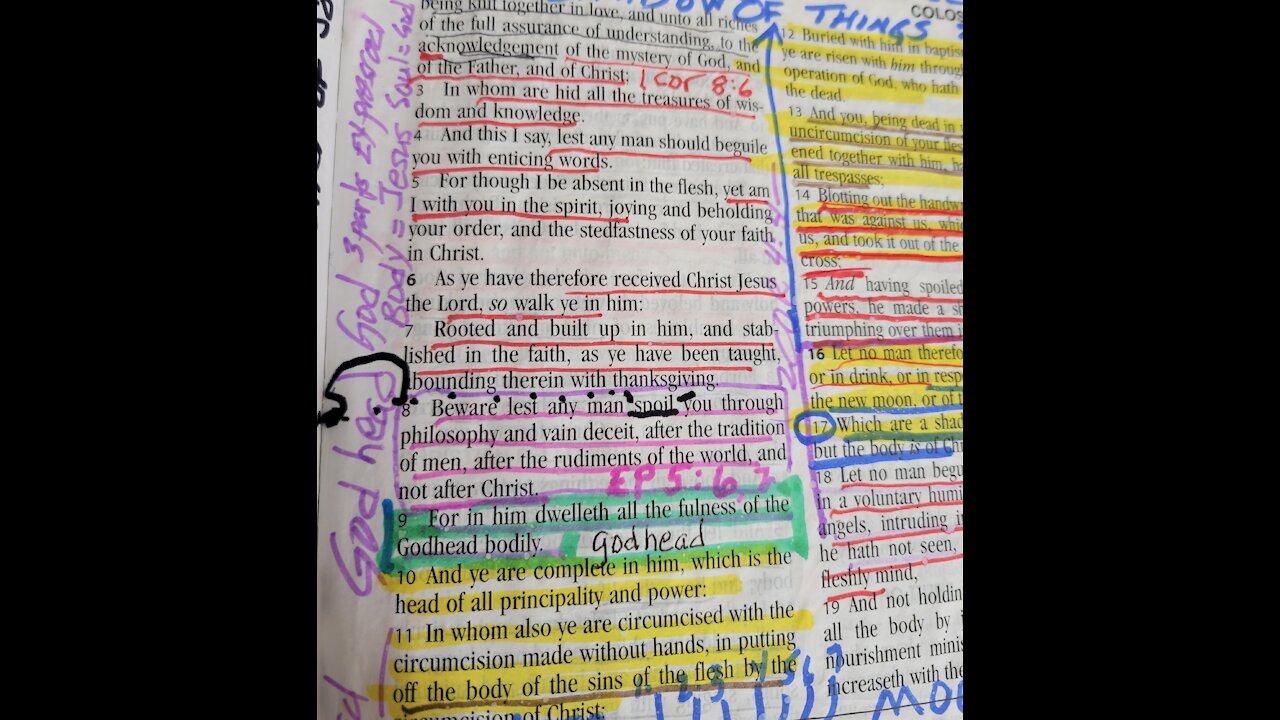 OW OF THINGS
COLOS
being knit together in love, and unto all riches
of the full assurance of understanding, to the
acknowledgement of the mystery of God, and
of the Father, and of Christ; 1 COR 8:6
3 In whom are hid all the treasures of wis-
dom and knowledge.
4 And this I say, lest any man should beguile
you with enticing words.
5 For though I be absent in the flesh, yet am
I with you in the spirit, joying and beholding
your order, and the stedfastness of your faith
in Christ.
6 As ye have therefore received Christ Jesus
the Lord, so walk ye in him:
7 Rooted and built up in him, and stab-
lished in the faith, as ye have been taught,
abounding therein with thanksgiving.
8 Beware lest any man spoil you through
philosophy and vain deceit, after the tradition
of men, after the rudiments of the world, and
not after Christ. EP 5:6,7
9 For in him dwelleth all the fulness of the
Godhead bodily. godhead
10 And ye are complete in him, which is the
head of all principality and power:
11 In whom also ye are circumcised with the
circumcision made without hands, in putting
off the body of the sins of the flesh by the
circumcision of Christ:
12 Buried with him in baptis
ye are risen with him throug
operation of God, who hath
the dead.
13 And you, being dead in
uncircumcision of your fles
ened together with him, h
all trespasses;
14 Blotting out the handw
that was against us, whic
us, and took it out of the
cross;
15 And having spoiled
powers, he made a sh
triumphing over them i
16 Let no man therefo
or in drink, or in resp
the new moon, or of t
17 Which are a shad
but the body is of Chr
18 Let no man begu
in a voluntary humi
angels, intruding i
he hath not seen,
fleshly mind,
19 And not holdin
all the body by
nourishment minis
increaseth with the
God head God 3 parts
Body = Jesus Soul = God